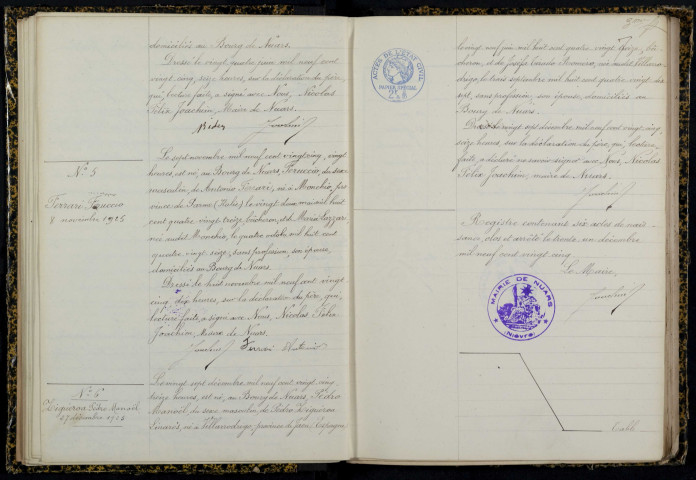 domiciliés au Bourg de Nuars.
Dressé le vingt quatre juin mil neuf cent
vingt cinq, seize heures, sur la déclaration du père,
qui, lecture faite, a signé avec Nous, Nicolas
Félix Joachim, Maire de Nuars.
Joachim
N° 5
Ferrari Feruccio
8 novembre 1925
Le sept novembre mil neuf cent vingt cinq, vingt
heures, est né, au Bourg de Nuars, Feruccio, du sexe
masculin, de Antonio Ferrari, né à Monchio, pro
vince de Parme (Italie) le vingt deux mai mil huit
cent quatre vingt treize, bûcheron, et de Maria Lazzari
née audit Monchio, le quatre octobre mil huit cent
quatre vingt seize, sans profession, son épouse,
domiciliés au Bourg de Nuars.
Dressé le huit novembre mil neuf cent vingt
cinq, dix heures, sur la déclaration du père, qui,
lecture faite, a signé avec Nous, Nicolas Félix
Joachim, Maire de Nuars.
Joachim Ferrari Antonio
N° 6
Zigueroa Pédro Manoël
27 décembre 1925
Le vingt sept décembre mil neuf cent vingt cinq,
seize heures, est né, au Bourg de Nuars, Pédro
Manoël, du sexe masculin, de Pédro Zigueroa
Linarès, né à Villarrodrigo, province de Jaen, Espagne
ACTES DE L'ÉTAT CIVIL
PAPIER SPÉCIAL
le vingt neuf juin mil huit cent quatre vingt seize, bû-
cheron, et de Josefa Casado Romero, née audit Villarro-
drigo, le trois septembre mil huit cent quatre vingt dix
sept, sans profession, son épouse, domiciliés au
Bourg de Nuars.
Dressé le vingt sept décembre mil neuf cent vingt cinq,
seize heures, sur la déclaration du père, qui, lecture
faite, a déclaré ne savoir signer avec Nous, Nicolas
Félix Joachim, maire de Nuars.
Joachim
Registre contenant six actes de nais-
sance, clos et arrêté le trente un décembre
mil neuf cent vingt cinq.
Le Maire,
Joachim
MAIRIE DE NUARS
(Nièvre)
Table